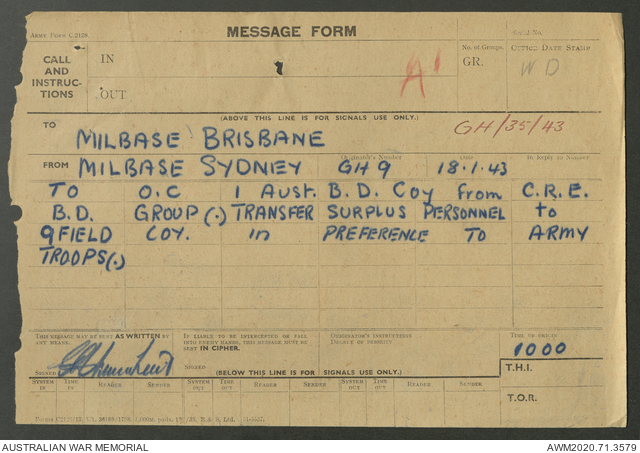 Army Form C.2128.
MESSAGE FORM
Serial No.
CALL AND INSTRUCTIONS
IN
OUT
No. of Groups.
GR.
OFFICE DATE STAMP
W D
A1
(ABOVE THIS LINE IS FOR SIGNALS USE ONLY.)
TO MILBASE BRISBANE
GH/35/43
FROM MILBASE SYDNEY
Originator's Number
GH 9
Date
18.1.43
In Reply to Number
TO O.C 1 AUST. B.D. COY from C.R.E.
B.D. GROUP (.) TRANSFER SURPLUS PERSONNEL to
9 FIELD COY. in PREFERENCE TO ARMY
TROOPS (.)
THIS MESSAGE MAY BE SENT AS WRITTEN BY ANY MEANS.
SIGNED
IF LIABLE TO BE INTERCEPTED OR FALL INTO ENEMY HANDS, THIS MESSAGE MUST BE SENT IN CIPHER.
SIGNED
ORIGINATOR'S INSTRUCTIONS
DEGREE OF PRIORITY
TIME OF ORIGIN
1000
(BELOW THIS LINE IS FOR SIGNALS USE ONLY.)
T.H.I.
SYSTEM IN
TIME IN
READER
SENDER
SYSTEM OUT
TIME OUT
READER
SENDER
SYSTEM OUT
TIME OUT
READER
SENDER
T.O.R.
AUSTRALIAN WAR MEMORIAL
AWM2020.71.3579